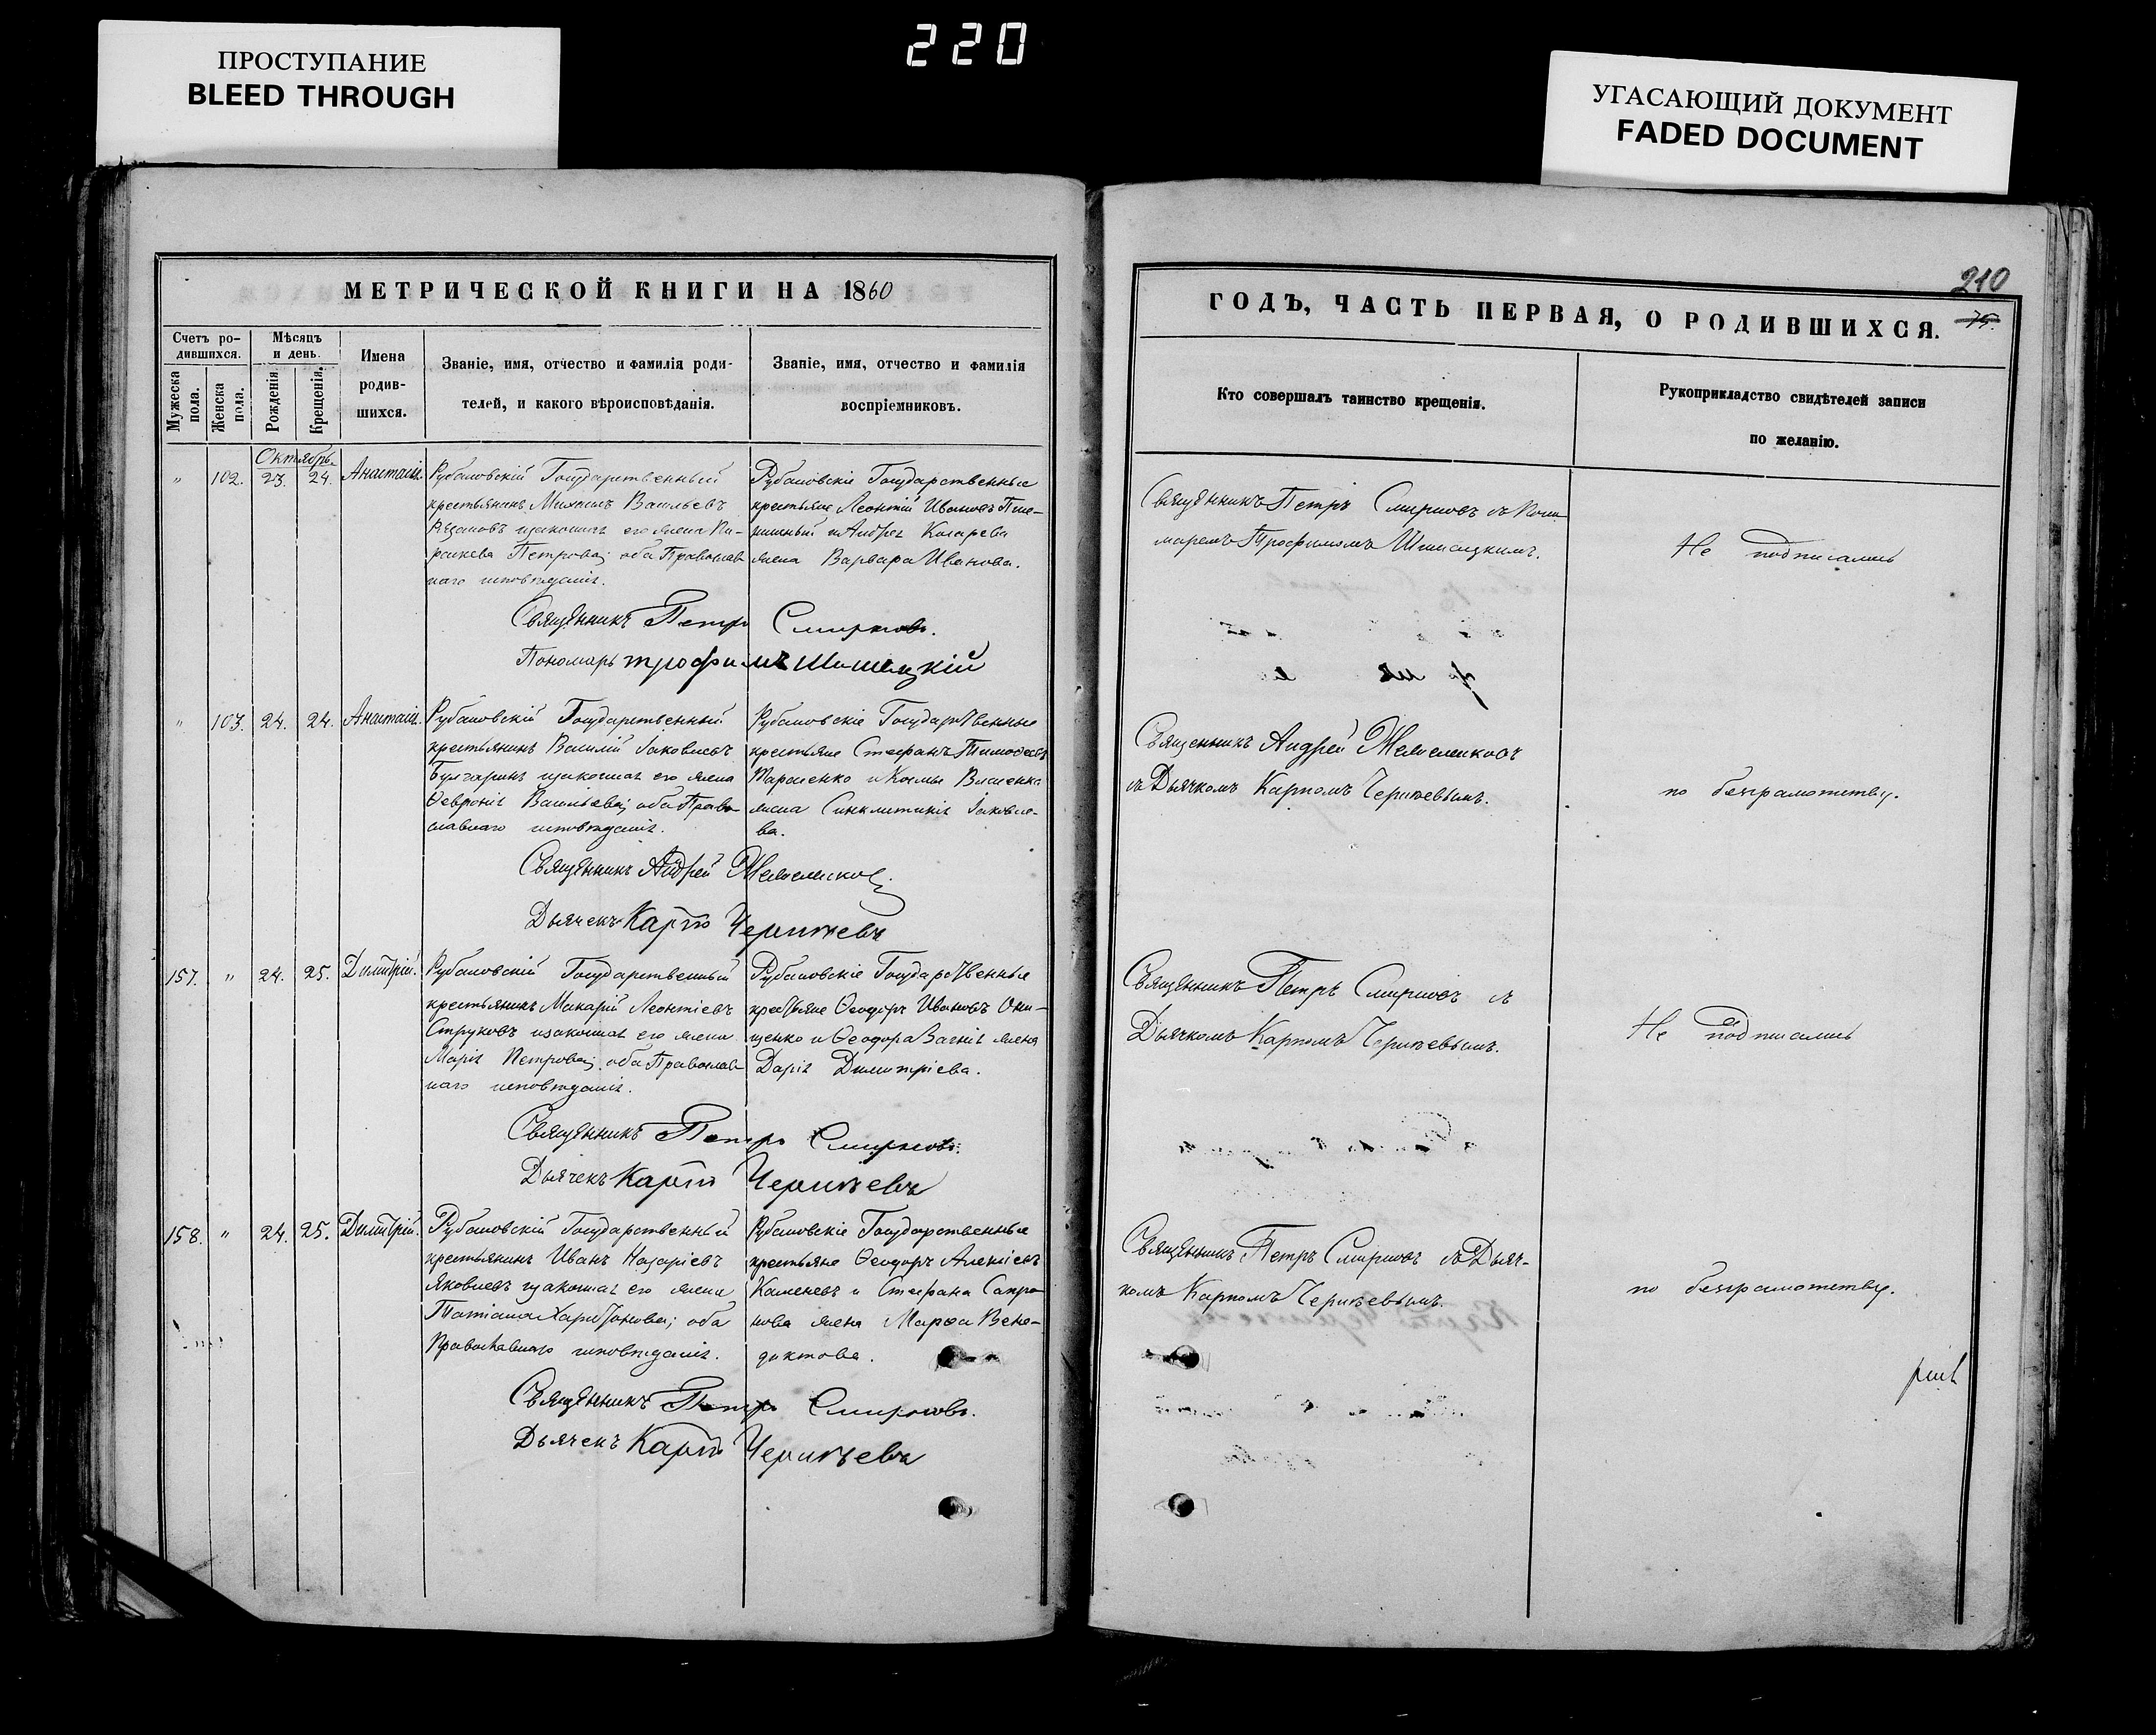 ПРОСТУПАНИЕ
BLEED THROUGH
220
УГАСАЮЩИЙ ДОКУМЕНТ
FADED DOCUMENT
МЕТРИЧЕСКОЙ КНИГИ НА 1860
Счетъ ро-
дившихся.
Мужеска пола.
Женска пола.
Мѣсяцъ
и день.
Рожденія.
Крещенія.
Имена
родив-
шихся.
Званіе, имя, отчество и фамилія роди-
телей, и какого вѣроисповѣданія.
Званіе, имя, отчество и фамилія
воспріемниковъ.
Октябрь.
" 102. 23. 24. Анастасія.
Рубановскій Государственный
крестьянинъ Михаилъ Васильевъ
законная его жена Па-
раскева Петрова; оба Православ
наго исповѣданія.
Рубановскіе Государственные
крестьяне Леонтій Ивановъ Пше-
ничный и Андрея Косарева
жена Варвара Иванова.
Священникъ Петръ Смирновъ.
Пономарь трофимъ
" 103. 24. 24. Анастасія.
Рубановскій Государственный
крестьянинъ Василій Іаковлевъ
Булгаринъ и законная его жена
Ѳевронія Васильева; оба Право
славнаго исповѣданія.
Рубановскіе Государственные
крестьяне Стефанъ Тимоѳеевъ
и Космы
жена Синклитикія Іаковле-
ва.
Священникъ Андрей
Дьячекъ Карпъ
157. " 24. 25. Димитрій.
Рубановскій Государственный
крестьянинъ Макарій Леонтіевъ
Струковъ и законная его жена
Марія Петрова; оба Православ
наго исповѣданія.
Рубановскіе Государственные
крестьяне Ѳеодоръ Ивановъ Они-
щенко и Ѳеодора жена
Дарія Димитріева.
Священникъ Петръ Смирновъ.
Дьячекъ Карпъ
158. " 24. 25. Димитрій.
Рубановскій Государственный
крестьянинъ Иванъ Назаріевъ
Яковлевъ и законная его жена
Татіана Харитонова; оба
Православнаго исповѣданія.
Рубановскіе Государственные
крестьяне Ѳеодоръ Алексіевъ
Каменевъ и Стефана Сапро
нова жена Марѳа Вене-
диктова.
Священникъ Петръ Смирновъ.
Дьячекъ Карпъ
210
75.
ГОДЪ, ЧАСТЬ ПЕРВАЯ, О РОДИВШИХСЯ.
Кто совершалъ таинство крещенія.
Рукоприкладство свидѣтелей записи
по желанію.
Священникъ Петръ Смирновъ съ Поно
маремъ Трофимомъ
Не подписались
Священникъ Андрей
съ Дьячкомъ Карпомъ
по безграмотству.
Священникъ Петръ Смирновъ съ
Дьячкомъ Карпомъ
Не подписались
Священникъ Петръ Смирновъ съ Дьяч-
комъ Карпомъ
по безграмотству.